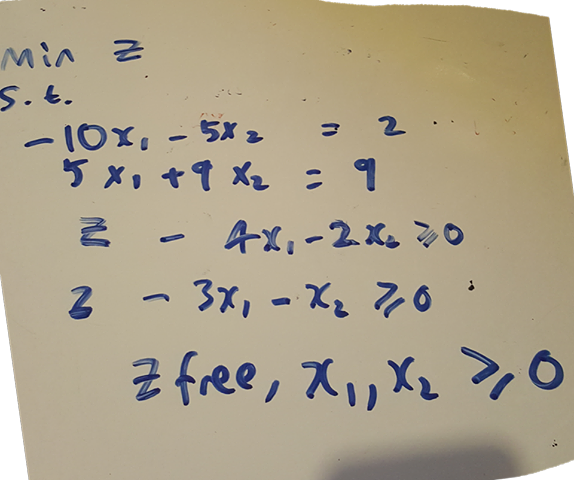 Min Z
s.t.
-10x₁ - 5x₂ = 2
5x₁ + 9x₂ = 9
Z - 4x₁ - 2x₂ ≥ 0
Z - 3x₁ - x₂ ≥ 0
Z free, x₁, x₂ ≥ 0